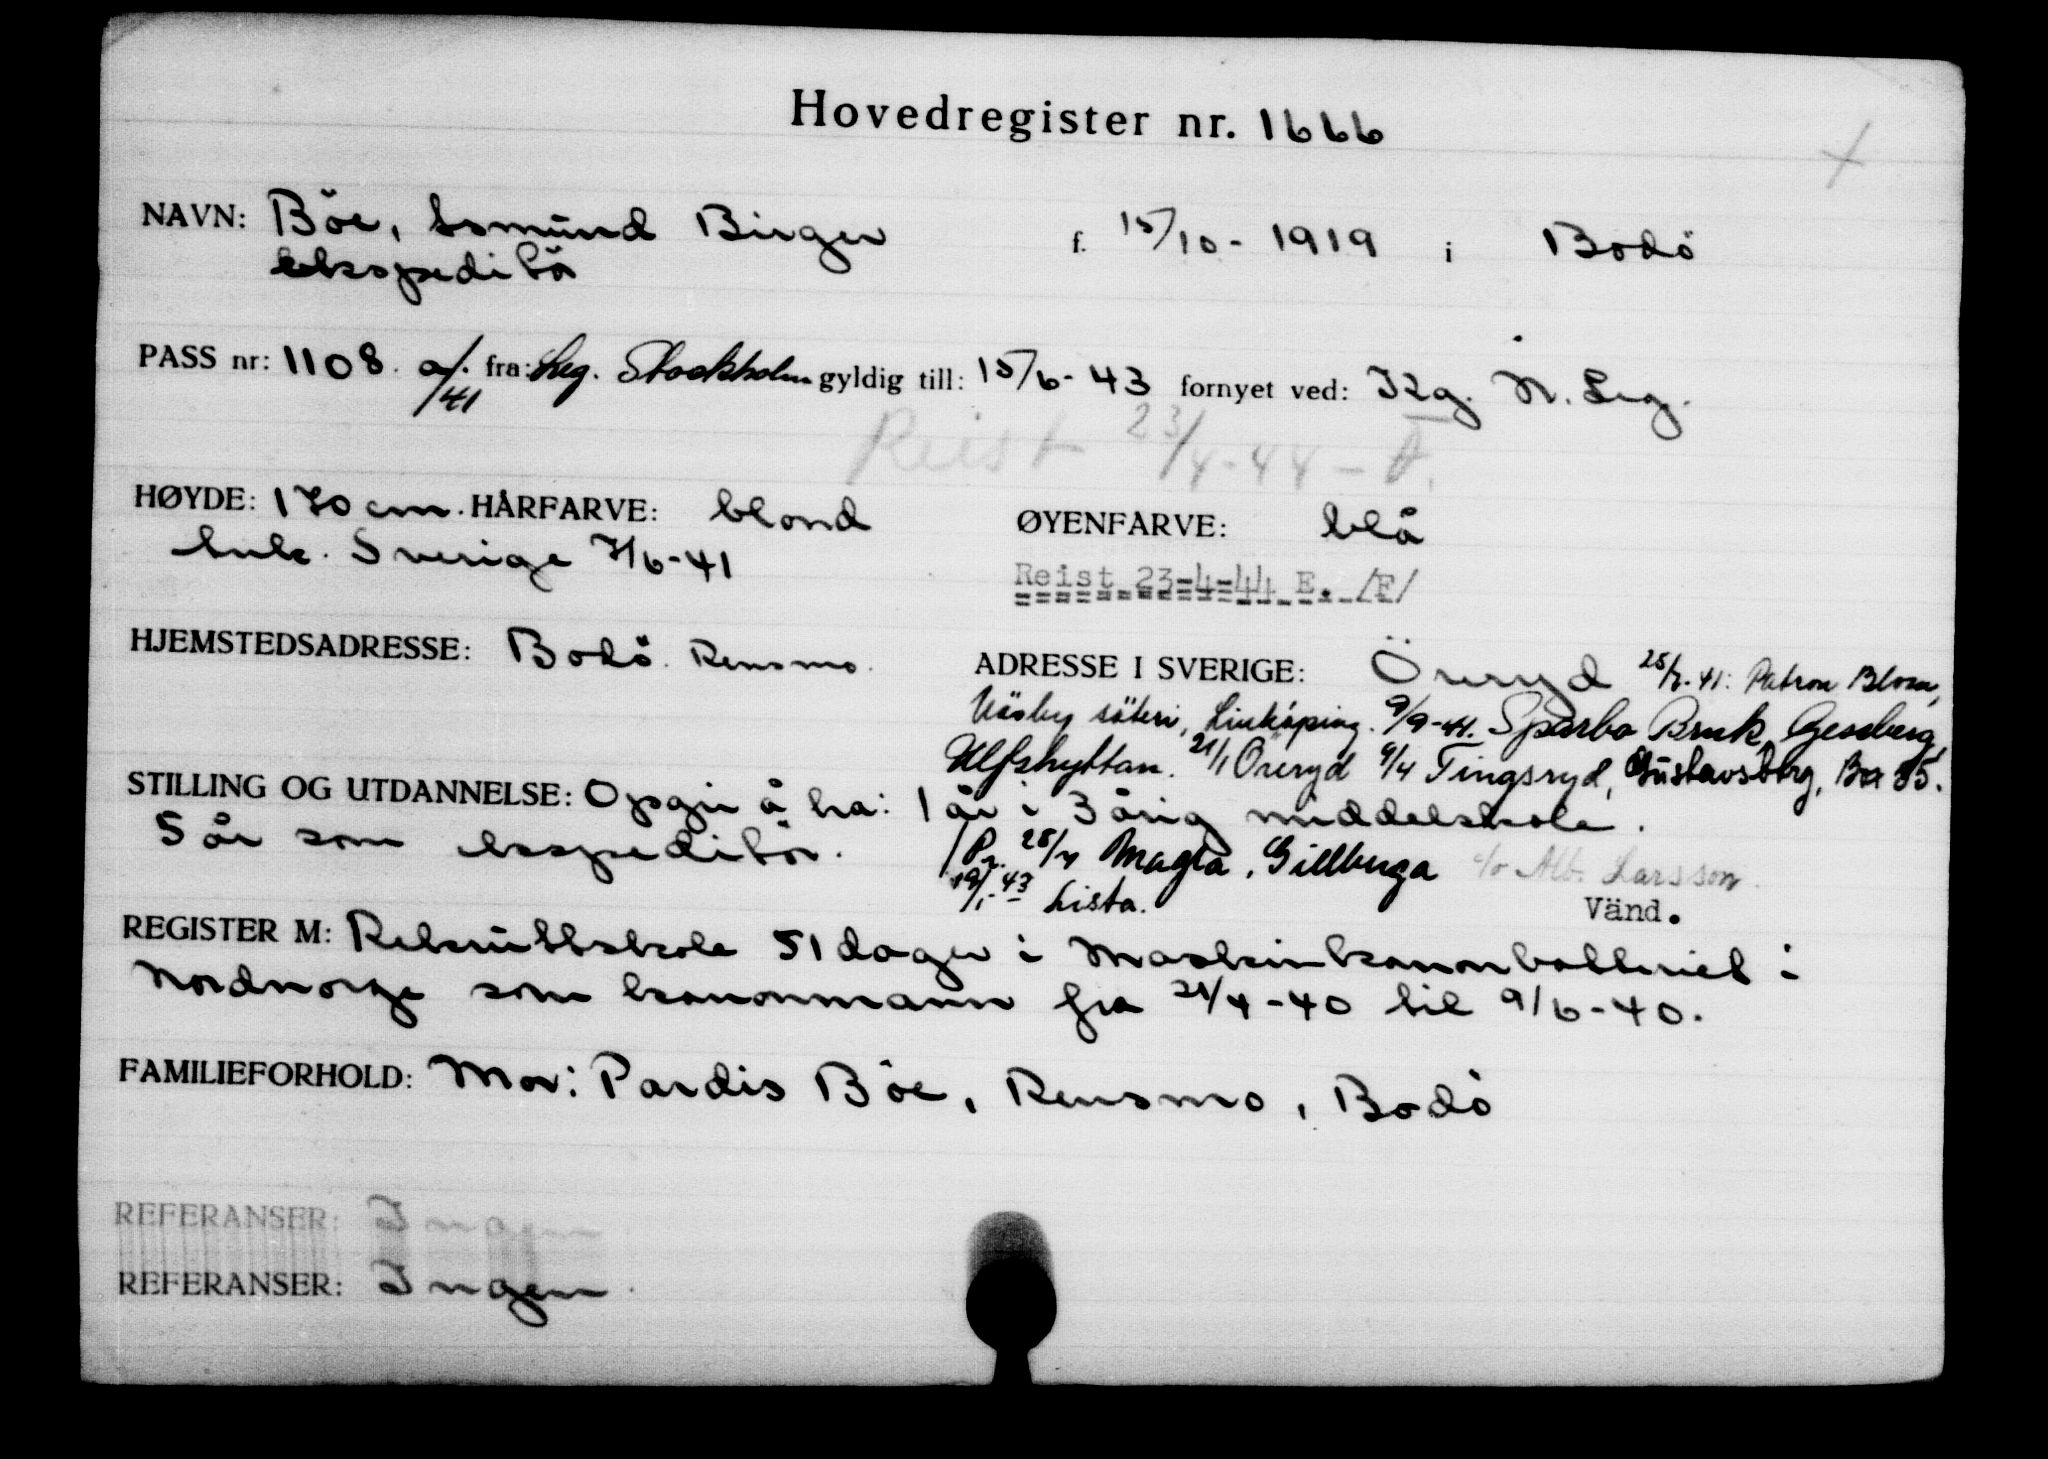 Hovedregister nr. 1666
NAVN: Böe, Asmund Birger f. 15/10-1919 i Bodö
ekspeditör
PASS nr: 1108. a/. /41 fra: Leg. Stockholm gyldig till: 15/6-43 fornyet ved: Kg. N. Leg.
Reist 23/4-44 -
HØYDE: 170 cm. HÅRFARVE: blond ØYENFARVE: blå
Ank. Sverige 7/6-41
Reist 23-4-44 E. /F/
HJEMSTEDSADRESSE: Bodö. Rensmo. ADRESSE I SVERIGE: Öreryd 25/7-41: Patron Blom,
Näsby säteri, Linköping. 9/9-41. Sparbo Bruk, Gesberg,
Ulfshyttan. 21/1 Öreryd 9/4 Tingsryd, Gustavsberg, Ba 35.
STILLING OG UTDANNELSE: Opgir å ha: 1 år i 3 årig middelskole.
5 år som ekspeditör.
/Pr. 28/4 Magra, Gillberga c/o Alb. Larsson.
19/1-43 Lista. Vänd.
REGISTER M: Rekruttskole 51 dager i Maskinkanonbatteriet i
Nordnorge som kanonmann fra 21/4-40 til 9/6-40.
FAMILIEFORHOLD: Mor: Pardis Böe, Rensmo, Bodö
REFERANSER: Ingen
REFERANSER: Ingen.